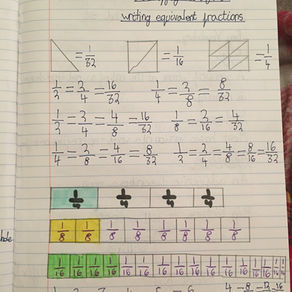 writing equivalent fractions.
= 1/32 = 1/16 = 1/4
1/2 = 2/4 = 16/32 1/4 = 2/8 = 8/32
1/2 = 2/4 = 4/8 = 16/32 1/8 = 2/16 = 4/32
1/4 = 2/8 = 4/16 = 8/32 1/2 = 2/4 = 4/8 = 8/16 = 16/32
1/4 1/4 1/4 1/4
1/8 1/8 1/8 1/8 1/8 1/8 1/8 1/8
1/16 1/16 1/16 1/16 1/16 1/16 1/16 1/16 1/16 1/16 1/16 1/16 1/16 1/16 1/16 1/16